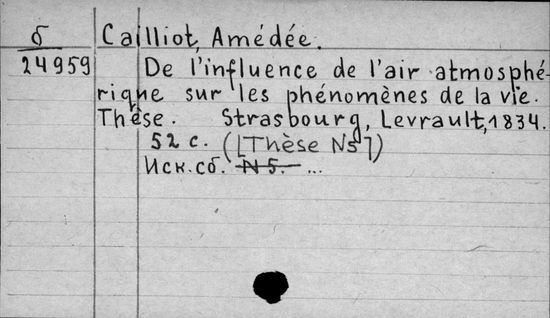 б Cailliot, Amédée.
24959 De l'influence de l'air atmosphé-
rique sur les phénomènes de la vie.
Thèse. Strasbourg, Levrault, 1834.
52 с. ([Thèse N5])
Иск. сб. N 5. ...